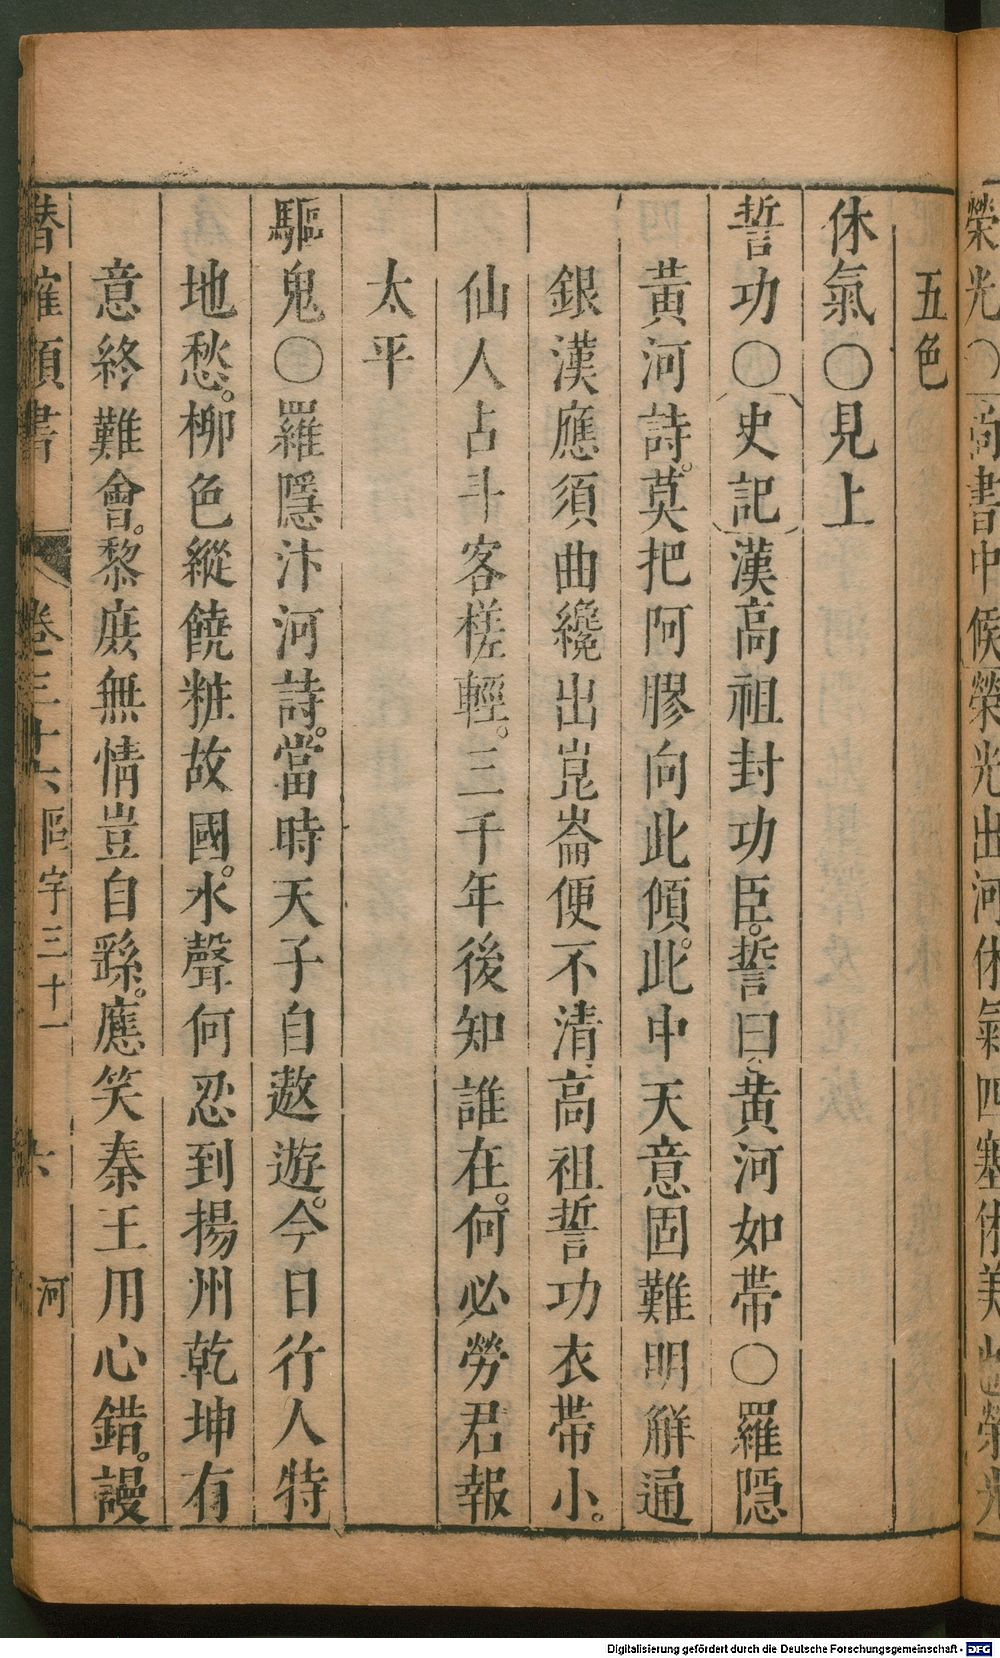 榮光〇尚書中候榮光出河休氣四塞休美也榮光
五色
休氣〇見上
誓功〇史記漢高祖封功臣。誓曰、黃河如帶〇羅隱
黃河詩。莫把阿膠向此傾。此中天意固難明解通
銀漢應須曲纔出崑崙便不清、高祖誓功衣帶小。
仙人占斗客槎輕。三千年後知誰在。何必勞君報
太平
驅鬼〇羅隱汴河詩。當時天子自遨遊。今日行人特
地愁。柳色縱饒粧故國。水聲何忍到揚州乾坤有
意終難會。黎庶無情豈自繇。應笑秦王用心錯。謾
潛確類書 卷三十六 區宇三十一 六 河
Digitalisierung gefördert durch die Deutsche Forschungsgemeinschaft - DFG